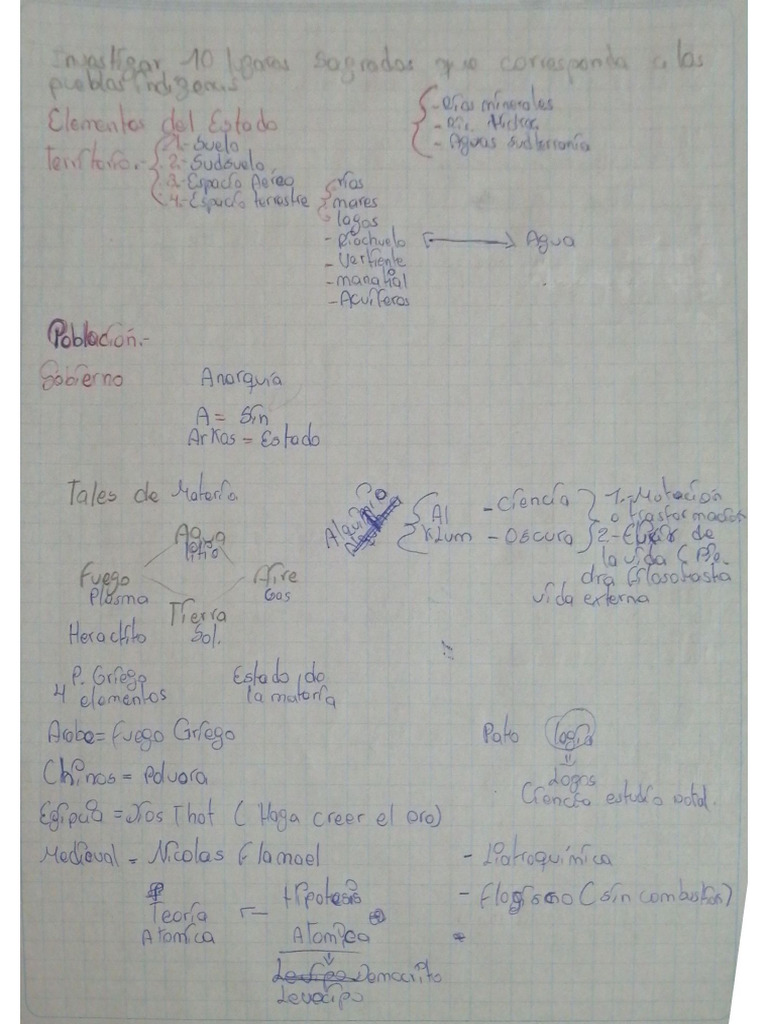 Investigar 10 lugares Sagrados que corresponda a los
pueblos Indigenas
Elementos del Estado
Territorio.-
1.- Suelo
2.- Subsuelo
3.- Espacio Aéreo
4.- Espacio terrestre
minerales
- Aguas subterranía
rios
mares
lagos
- Riachuelo
- Vertiente
- manatial
- Acuíferos
Agua
Población.-
Gobierno
Anarquia
A = Sin
Arkos = Estado
Tales de
Agua
Fuego
Plasma
Aire
Gas
Tierra
Sol.
Heraclito
P. Griego
4 elementos
Estado de
la materia
Alquimia
Al - Ciencia
Klum - Oscura
1.- Motación
o trasformacion
2.- de
la vida ( Pie
dra filosofasta
vida externa
Arabe = Fuego Griego
Chinos = Polvora
= Dios Thot ( Haga creer el oro)
Medieval = Nicolas Flamael
Pato logia
Logos
Ciencia estudio
- Iiatroquímica
- (sin combustion)
Teoría
Atomica
Hipotesis
Atomica
Democrito
Leucipo